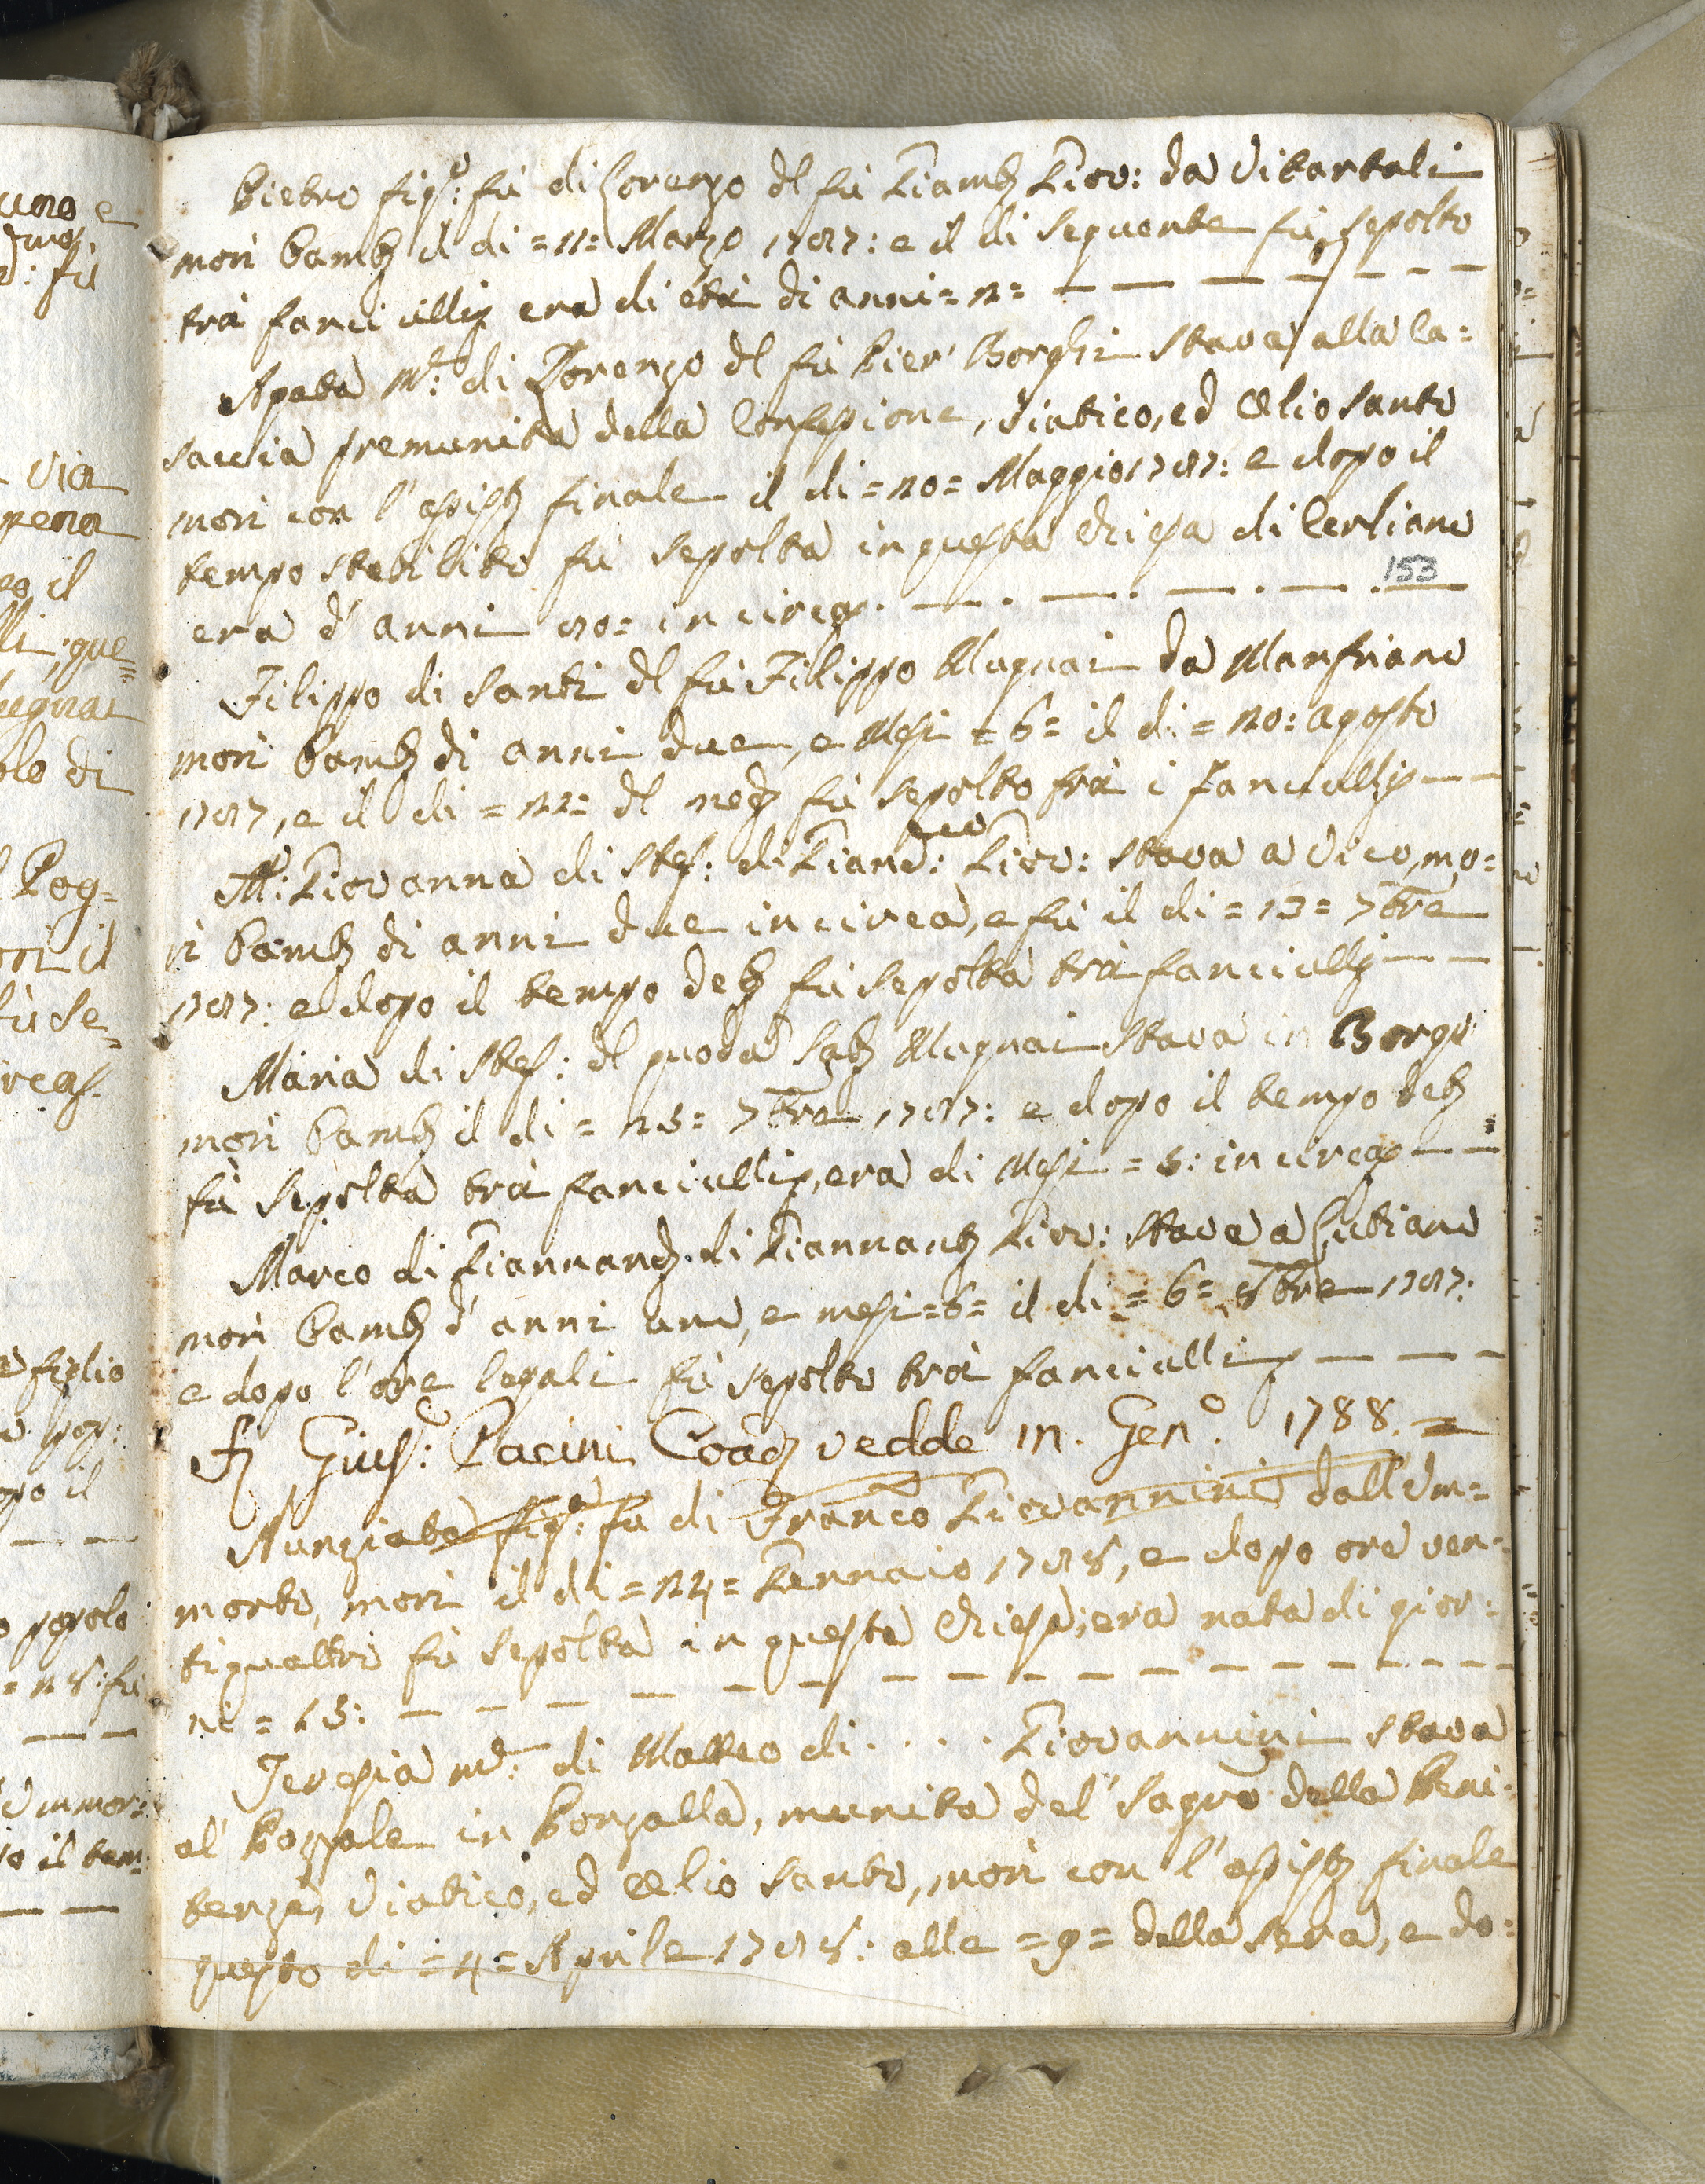 Pietro figlo: fù di Lorenzo dl fù Giamb Giov: da Vitartali
morì bamb il di =11= Marzo 1787: e il di seguente fù sepolto
trà fanciulli, era di età di anni =2= — — — — — — —
Agata Me: di Lorenzo dl fù Pier' Borghi stava alla Ca=
saccia premunita della Confessione, Viatico, ed Olio Santo
morì con l'assist finale il di =20= Maggio 1787: e dopo il
tempo stabilito fù sepolta in questa Chiesa di Cerliano
era d'anni 80= in circa. — . — . — . — . —
153
Filippo di Santi dl fù Filippo Mugnai da Manfriano
morì bamb di anni due, e Mesi =6= il di =20: agosto
1787, e il di =22= dl med fù sepolto frà i Fanciulli — —
M: Giovanna di Stef: di Giand: Giov: stava a Vico, mo=
rì bamb di anni due in circa, e fù il di =13= 7bre
1787: e dopo il tempo deb fù sepolta trà fanciulli — —
Maria di Stef: dl quoda Sab Mugnai stava in Borgo
morì bamb il di =25= 7bre 1787: e dopo il tempo deb
fù sepolta trà fanciulli, era di Mesi =5: in circa — —
Marco di Giannand. di Giannant Giov: stava a Cutiano
morì bamb d'anni uno, e mesi =6= il di =6= 8bre 1787:
e dopo l'ore legali fù sepolto trà fanciulli — — —
Giusᵉ: Pacini Coad vedde in Genº 1788. =
Nunziata figa: fu di Franco Giovannini dall'Om=
morto, morì il di =24= Gennaio 1788, e dopo ore ven=
tiquattro fù sepolta in questa Chiesa, era nata di gior=
ni =15: — — — — — — — — — — — —
Teresia Me: di Matteo di . . . . Giovannini stava
al' Pozzale in Ponzalla, munita del' Sagro della Peni=
tenza, Viatico, ed Olio Santo, morì con l'assist finale
questo di =4= Aprile 1788: alle =9= della sera, e do=